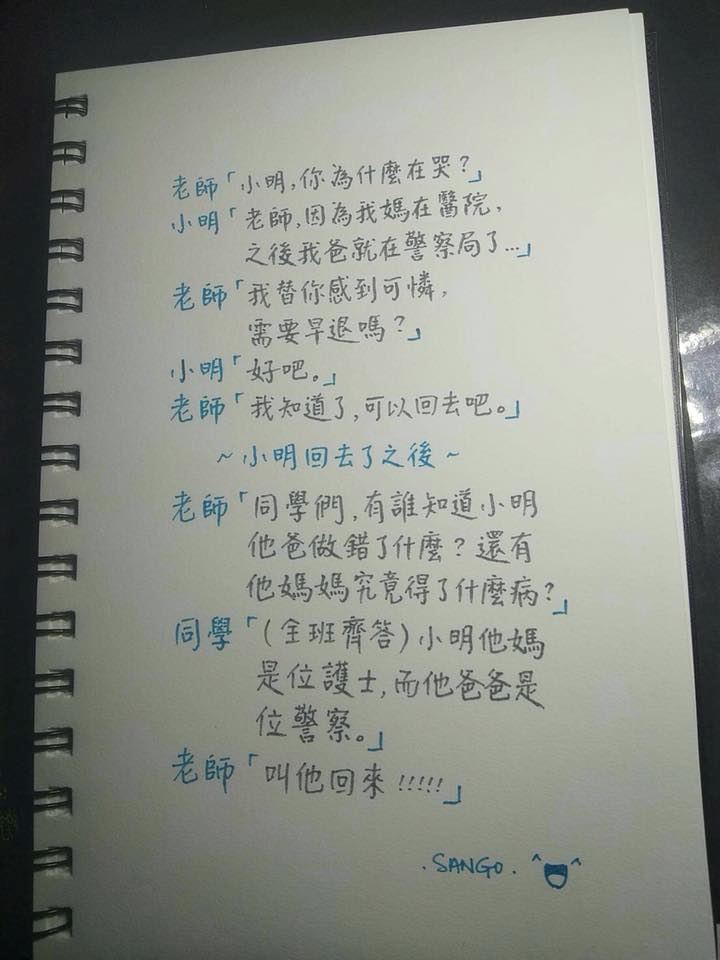 老師「小明,你為什麼在哭?」
小明「老師,因為我媽在醫院,
之後我爸就在警察局了...」
老師「我替你感到可憐,
需要早退嗎?」
小明「好吧。」
老師「我知道了,可以回去吧。」
~小明回去了之後~
老師「同學們,有誰知道小明
他爸做錯了什麼?還有
他媽媽究竟得了什麼病?」
同學「(全班齊答)小明他媽
是位護士,而他爸爸是
位警察。」
老師「叫他回來!!!!!」
.SANGO.